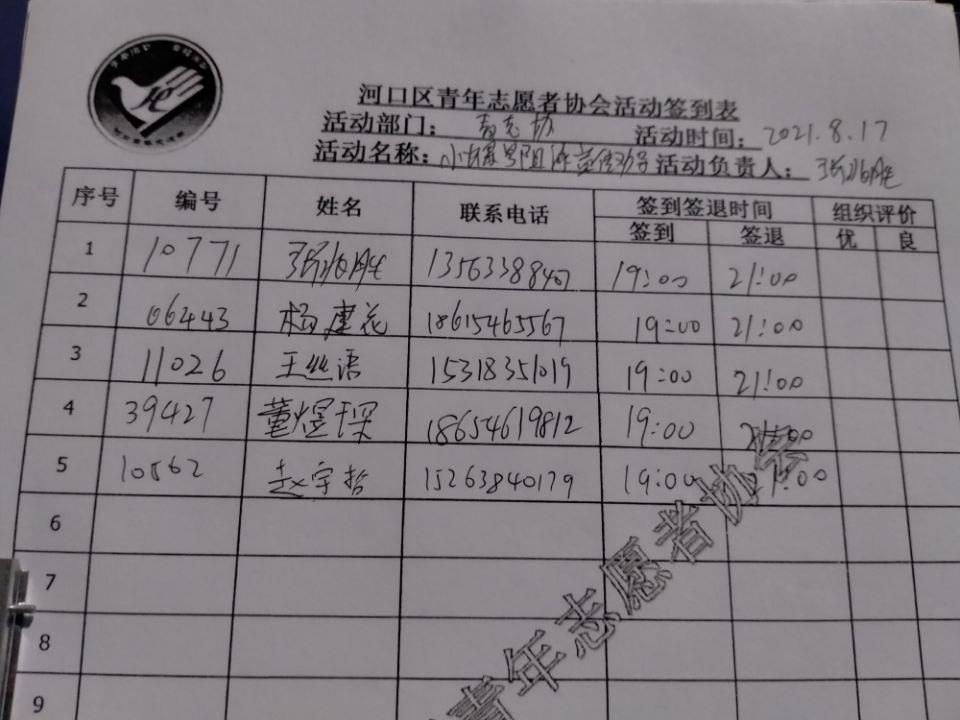 河口区青年志愿者协会活动签到表
活动部门: 青志协 活动时间: 2021.8.17
活动名称: 活动负责人: 张兆胜
序号 编号 姓名 联系电话 签到签退时间 组织评价
签到 签退 优 良
1 10771 张兆胜 13563388407 19:00 21:00
2 06443 杨建花 18615465567 19:00 21:00
3 11026 王丝语 15318351019 19:00 21:00
4 39427 董煜琛 18654619812 19:00 21:00
5 10562 赵宇哲 15263840179 19:00 21:00
6
7
8
9
青年志愿者协会